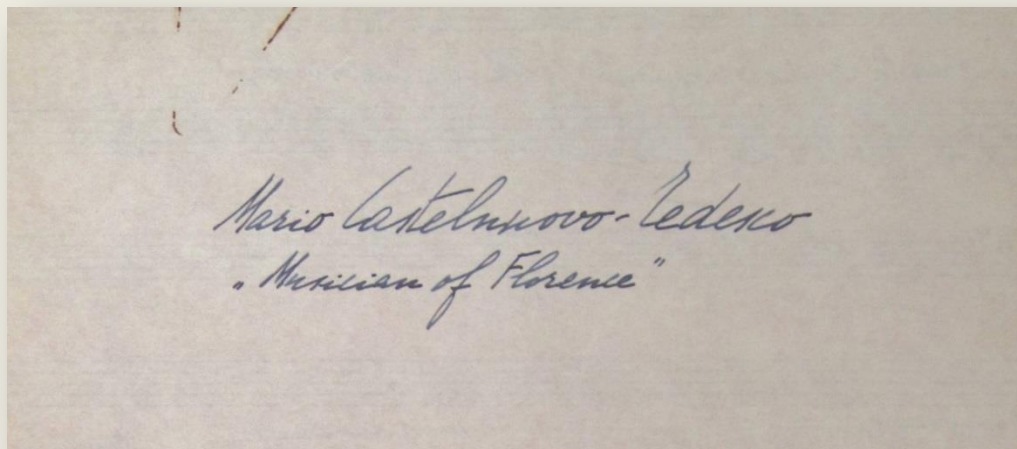 Mario Castelnuovo-Tedesco
„Musician of Florence"